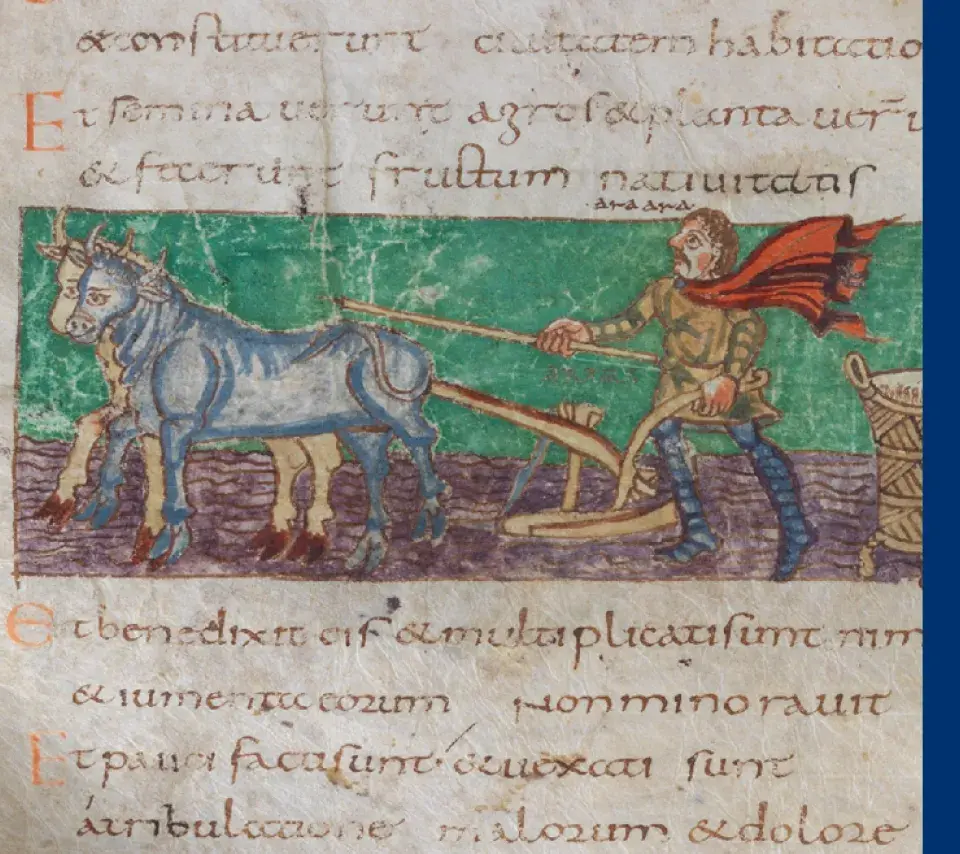 & constituerunt ciuitatem habitatio
Et semina uerunt agros & planta uer̄ u
& fecerunt fructum natiuitatis
ara ara
Et benedixit eis & multiplicati sunt nim
& iumenta eorum Non minorauit
Et pauci facti sunt & uexati sunt
atribulatione malorum & dolore